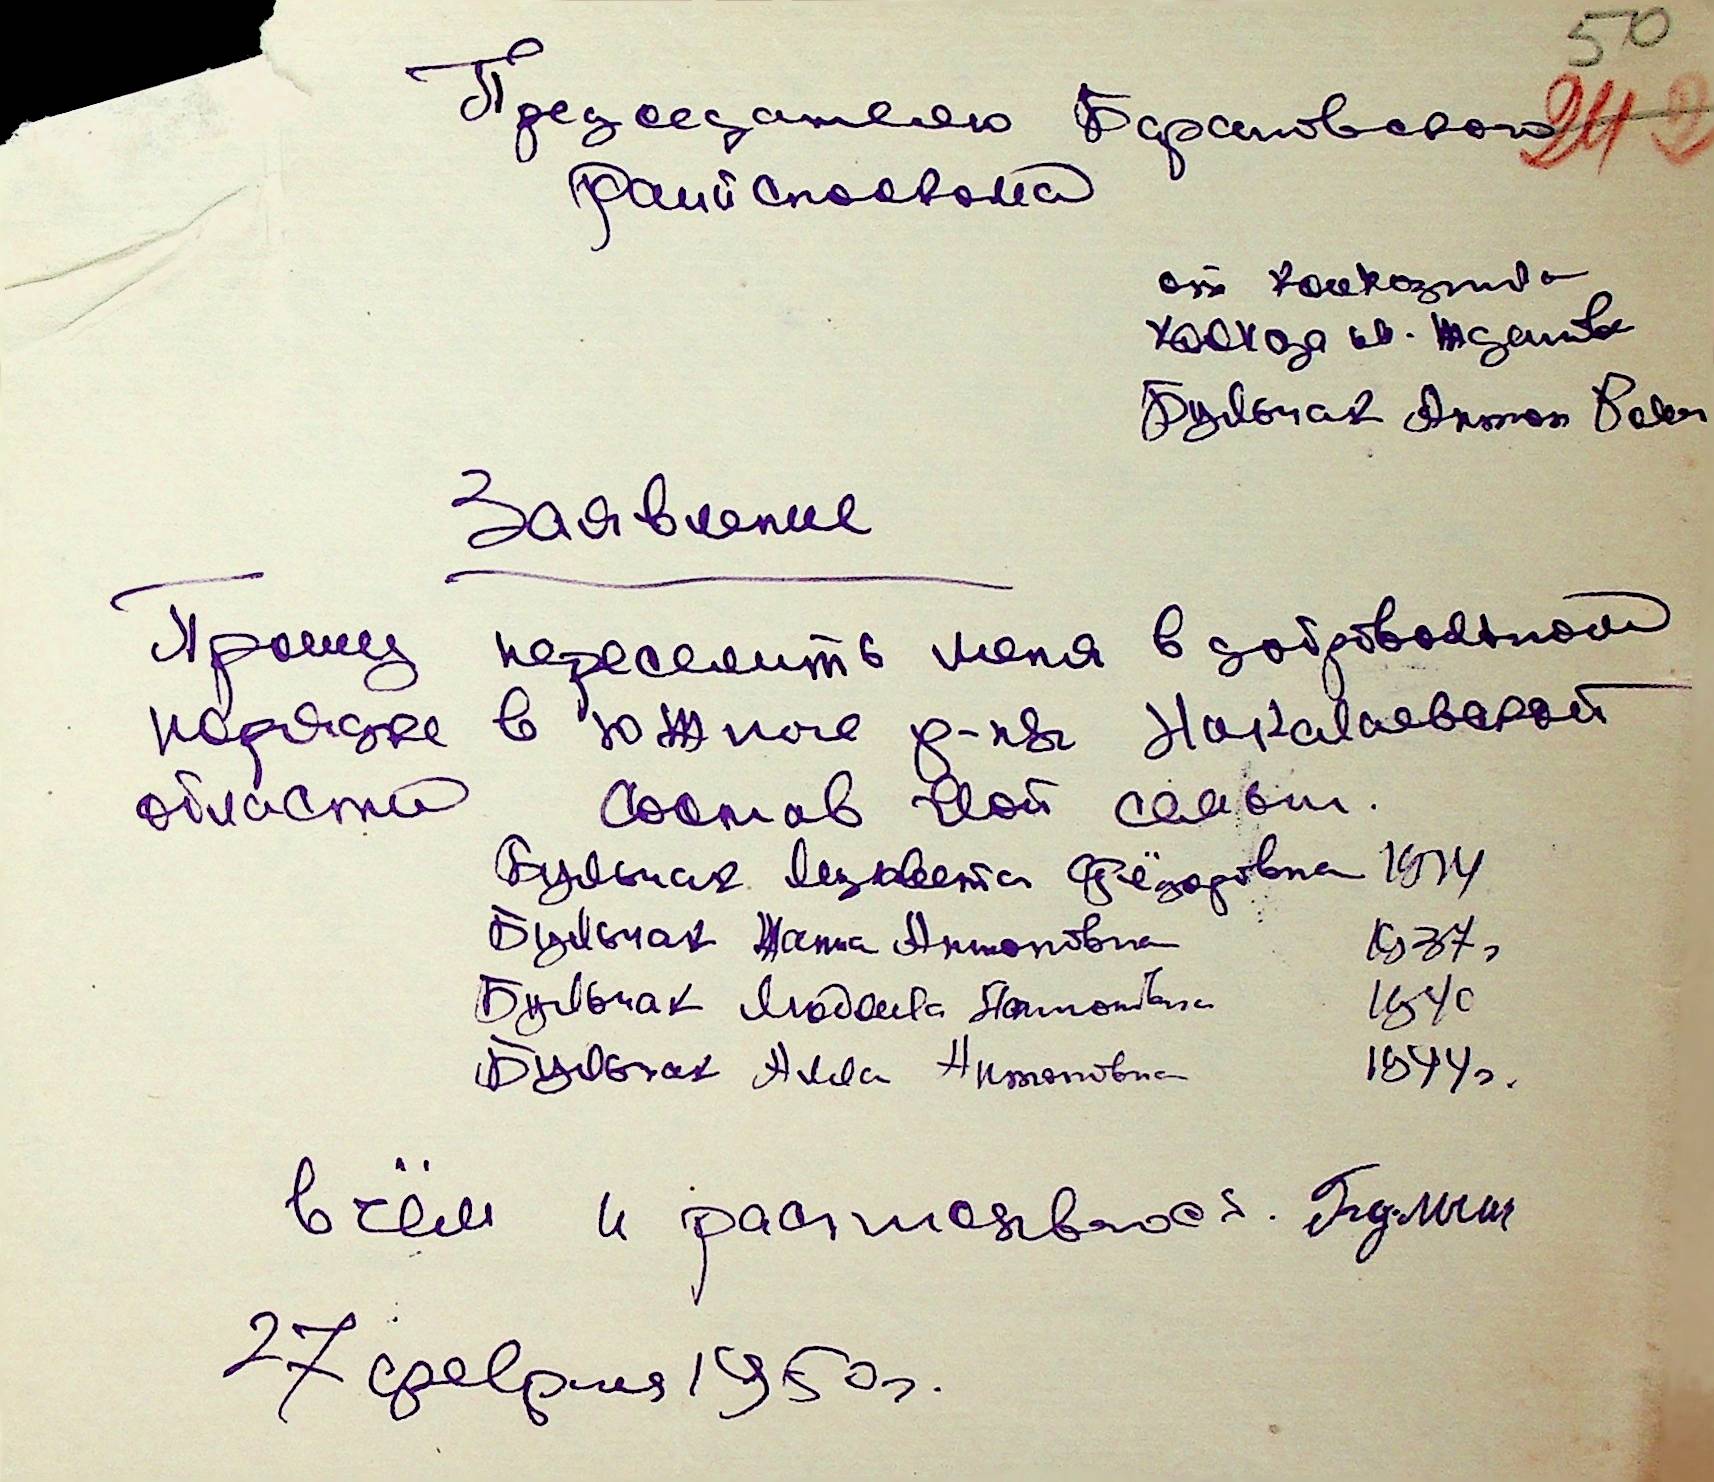 50
24 2
Председателю Барановского
Райисполкома
от колхозника
колхоза им. Жданова
Бульчак Антон
Заявление
Прошу переселить меня в добровольном
порядке в южные р-ны Николаевской
области Состав моей семьи.
Бульчак Лизавета Фёдоровна 1914
Бульчак Жанна Антоновна 1937г
Бульчак Людмила Антоновна 1940
Бульчак Алла Антоновна 1944г.
в чём и расписываюсь.
27 февраля 1950г.